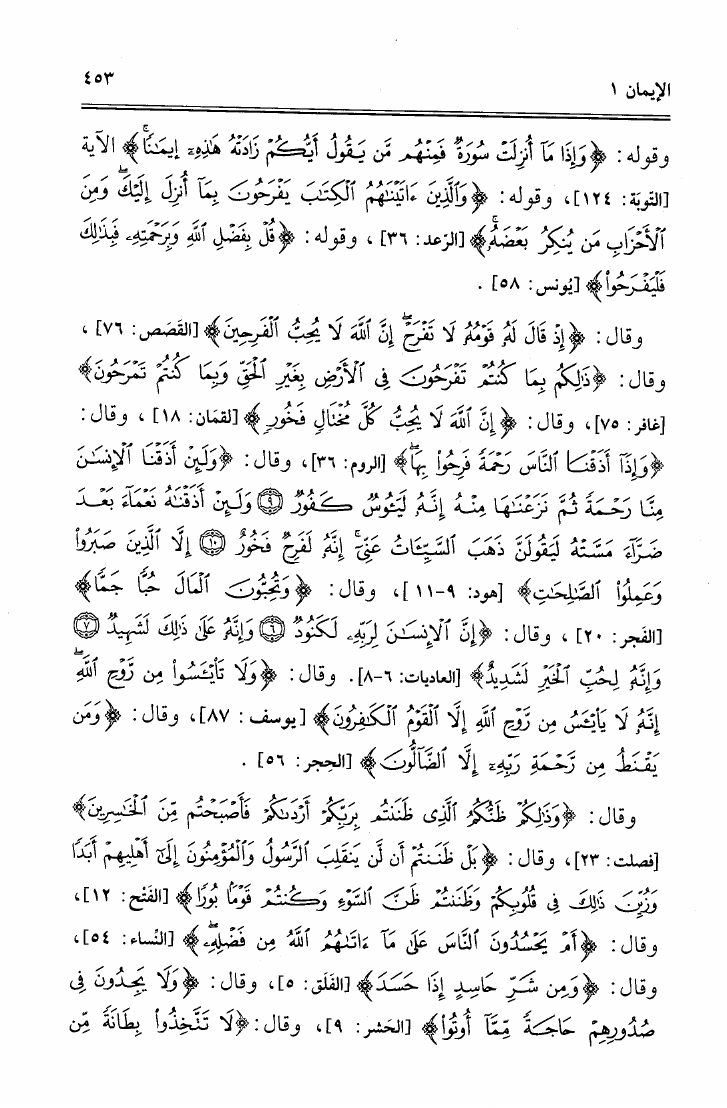 الإيمان ١
٤٥٣
وقوله: ﴿وَإِذَا مَآ أُنزِلَتْ سُورَةٌ فَمِنْهُم مَّن يَقُولُ أَيُّكُمْ زَادَتْهُ هَٰذِهِۦٓ إِيمَٰنًا﴾ الآية
[التوبَة: ١٢٤]، وقوله: ﴿وَٱلَّذِينَ ءَاتَيْنَٰهُمُ ٱلْكِتَٰبَ يَفْرَحُونَ بِمَآ أُنزِلَ إِلَيْكَ وَمِنَ
ٱلْأَحْزَابِ مَن يُنكِرُ بَعْضَهُۥ﴾ [الرّعد: ٣٦]، وقوله: ﴿قُلْ بِفَضْلِ ٱللَّهِ وَبِرَحْمَتِهِۦ فَبِذَٰلِكَ
فَلْيَفْرَحُوا۟﴾ [يونس: ٥٨].
وقال: ﴿إِذْ قَالَ لَهُۥ قَوْمُهُۥ لَا تَفْرَحْ إِنَّ ٱللَّهَ لَا يُحِبُّ ٱلْفَرِحِينَ﴾ [القَصَص: ٧٦]،
وقال: ﴿ذَٰلِكُم بِمَا كُنتُمْ تَفْرَحُونَ فِى ٱلْأَرْضِ بِغَيْرِ ٱلْحَقِّ وَبِمَا كُنتُمْ تَمْرَحُونَ﴾
[غافر: ٧٥]، وقال: ﴿إِنَّ ٱللَّهَ لَا يُحِبُّ كُلَّ مُخْتَالٍ فَخُورٍ﴾ [لقمَان: ١٨]، وقال:
﴿وَإِذَآ أَذَقْنَا ٱلنَّاسَ رَحْمَةً فَرِحُوا۟ بِهَا﴾ [الروم: ٣٦]، وقال: ﴿وَلَئِنْ أَذَقْنَا ٱلْإِنسَٰنَ
مِنَّا رَحْمَةً ثُمَّ نَزَعْنَٰهَا مِنْهُ إِنَّهُۥ لَيَـُٔوسٌ كَفُورٌ ٩ وَلَئِنْ أَذَقْنَٰهُ نَعْمَآءَ بَعْدَ
ضَرَّآءَ مَسَّتْهُ لَيَقُولَنَّ ذَهَبَ ٱلسَّيِّـَٔاتُ عَنِّىٓ إِنَّهُۥ لَفَرِحٌ فَخُورٌ ١٠ إِلَّا ٱلَّذِينَ صَبَرُوا۟
وَعَمِلُوا۟ ٱلصَّٰلِحَٰتِ﴾ [هود: ٩-١١]، وقال: ﴿وَتُحِبُّونَ ٱلْمَالَ حُبًّا جَمًّا﴾
[الفَجر: ٢٠]، وقال: ﴿إِنَّ ٱلْإِنسَٰنَ لِرَبِّهِۦ لَكَنُودٌ ٦ وَإِنَّهُۥ عَلَىٰ ذَٰلِكَ لَشَهِيدٌ ٧
وَإِنَّهُۥ لِحُبِّ ٱلْخَيْرِ لَشَدِيدٌ﴾ [العاديات: ٦-٨]. وقال: ﴿وَلَا تَا۟يْـَٔسُوا۟ مِن رَّوْحِ ٱللَّهِ
إِنَّهُۥ لَا يَا۟يْـَٔسُ مِن رَّوْحِ ٱللَّهِ إِلَّا ٱلْقَوْمُ ٱلْكَٰفِرُونَ﴾ [يوسف: ٨٧]، وقال: ﴿وَمَن
يَقْنَطُ مِن رَّحْمَةِ رَبِّهِۦٓ إِلَّا ٱلضَّآلُّونَ﴾ [الحِجر: ٥٦].
وقال: ﴿وَذَٰلِكُمْ ظَنُّكُمُ ٱلَّذِى ظَنَنتُم بِرَبِّكُمْ أَرْدَىٰكُمْ فَأَصْبَحْتُم مِّنَ ٱلْخَٰسِرِينَ﴾
[فصلت: ٢٣]، وقال: ﴿بَلْ ظَنَنتُمْ أَن لَّن يَنقَلِبَ ٱلرَّسُولُ وَٱلْمُؤْمِنُونَ إِلَىٰٓ أَهْلِيهِمْ أَبَدًا
وَزُيِّنَ ذَٰلِكَ فِى قُلُوبِكُمْ وَظَنَنتُمْ ظَنَّ ٱلسَّوْءِ وَكُنتُمْ قَوْمًۢا بُورًا﴾ [الفَتْح: ١٢]،
وقال: ﴿أَمْ يَحْسُدُونَ ٱلنَّاسَ عَلَىٰ مَآ ءَاتَىٰهُمُ ٱللَّهُ مِن فَضْلِهِۦ﴾ [النِّساء: ٥٤]،
وقال: ﴿وَمِن شَرِّ حَاسِدٍ إِذَا حَسَدَ﴾ [الفَلَق: ٥]، وقال: ﴿وَلَا يَجِدُونَ فِى
صُدُورِهِمْ حَاجَةً مِّمَّآ أُوتُوا۟﴾ [الحَشر: ٩]، وقال: ﴿لَا تَتَّخِذُوا۟ بِطَانَةً مِّن